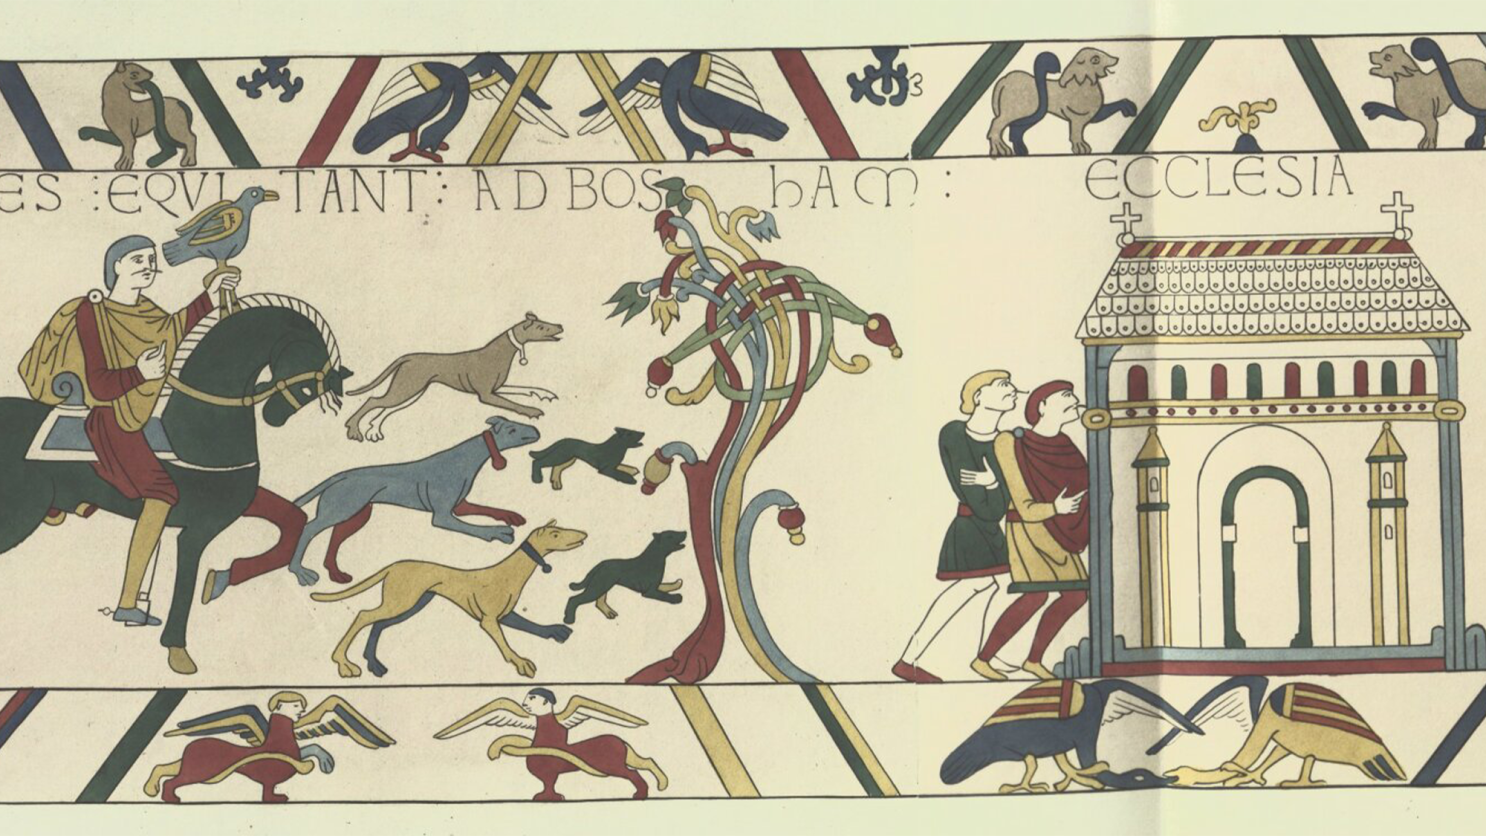 ES : EQVITANT : AD BOSHAM : ECCLESIA